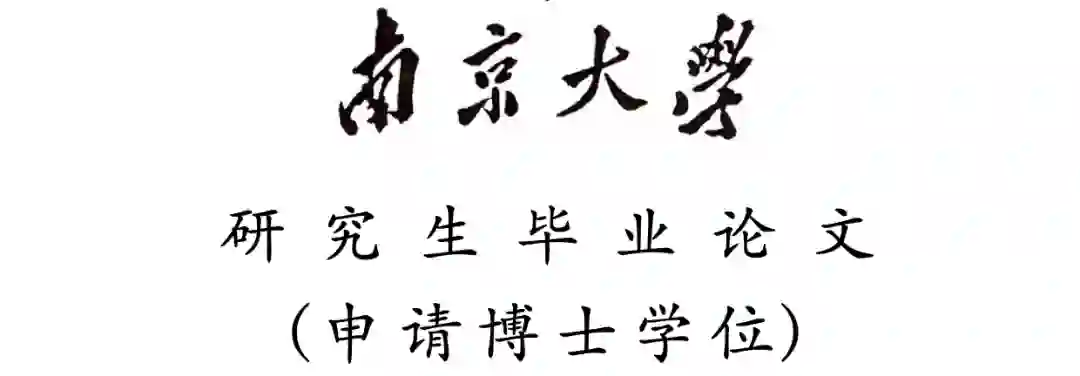 南京大學
研究生毕业论文
(申请博士学位)